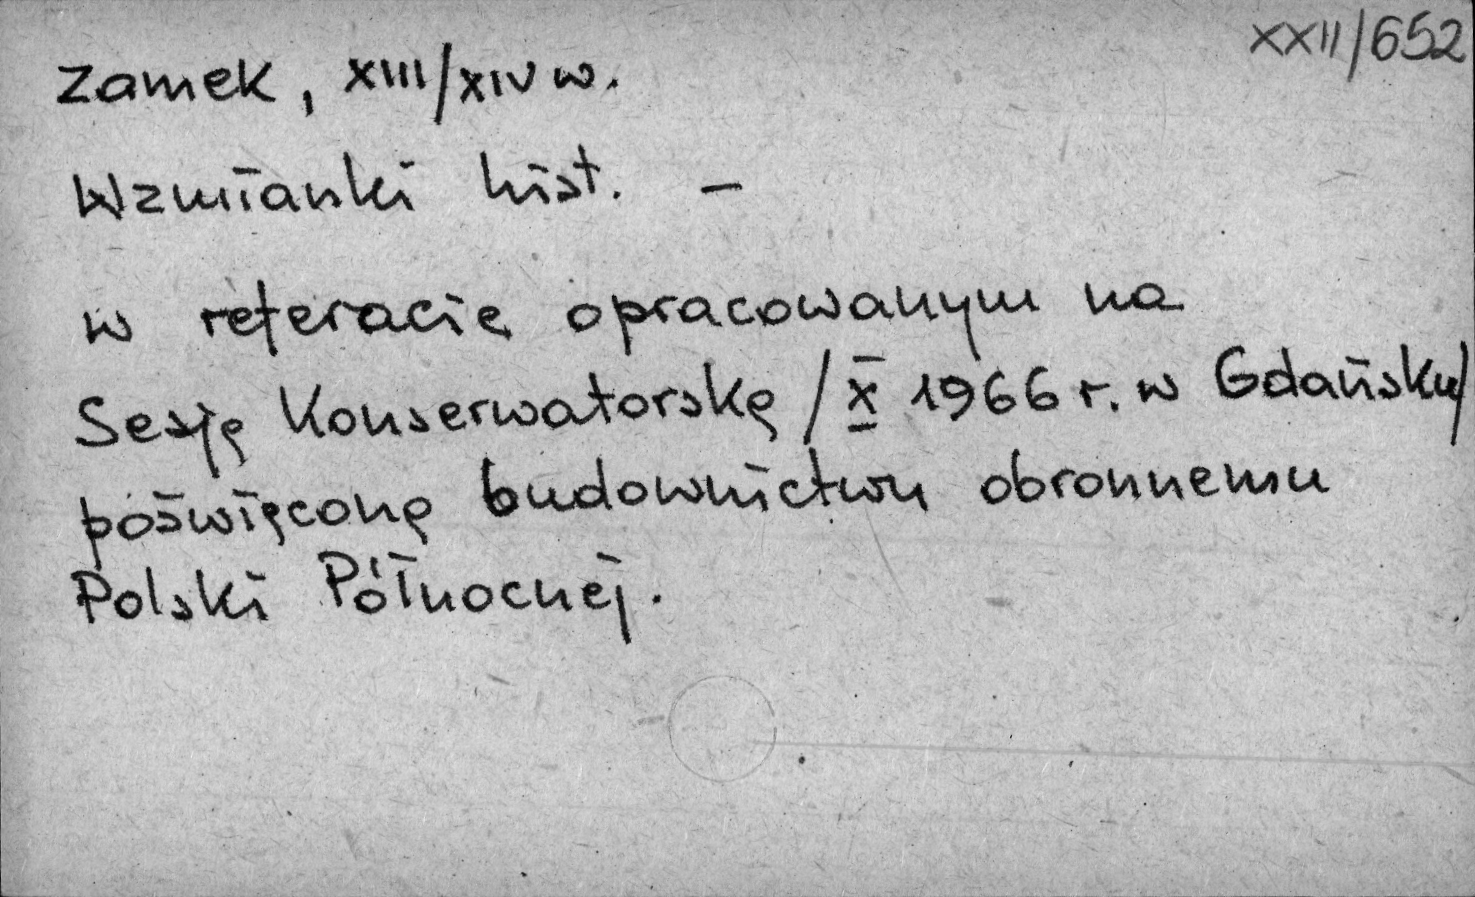 XXII/652
Zamek, XIII/XIV w.
Wzmianki hist. –
w referacie opracowanym na
Sesję Konserwatorską /X 1966 r. w Gdańsku/
poświęconą budownictwu obronnemu
Polski Północnej.